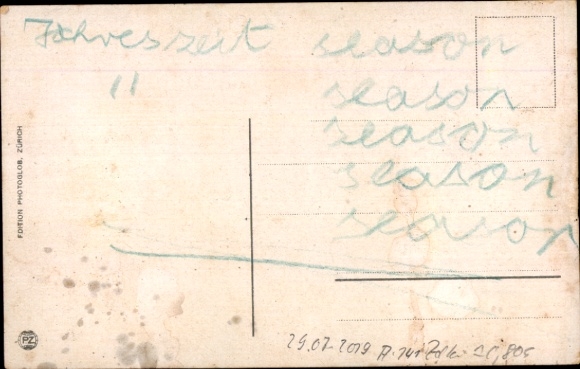 Jahreszeit season
" season
season
season
season
EDITION PHOTOGLOB, ZÜRICH
PZ
29.07-2019